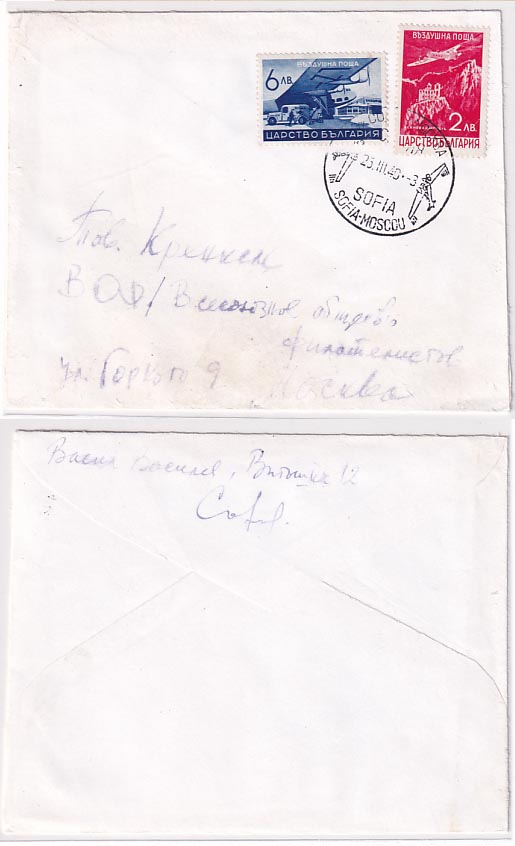 ВЪЗДУШНА ПОЩА
6 ЛВ.
ЦАРСТВО БЪЛГАРИЯ
ВЪЗДУШНА ПОЩА
2 ЛВ.
ЦАРСТВО БЪЛГАРИЯ
25.III.40.-3
SOFIA
SOFIA-MOSCOU
Тов. Кренкель
ВОФ/Всесоюзное
филателистов
ул. Горького 9 Москва
Васил Василев, Витоша 12